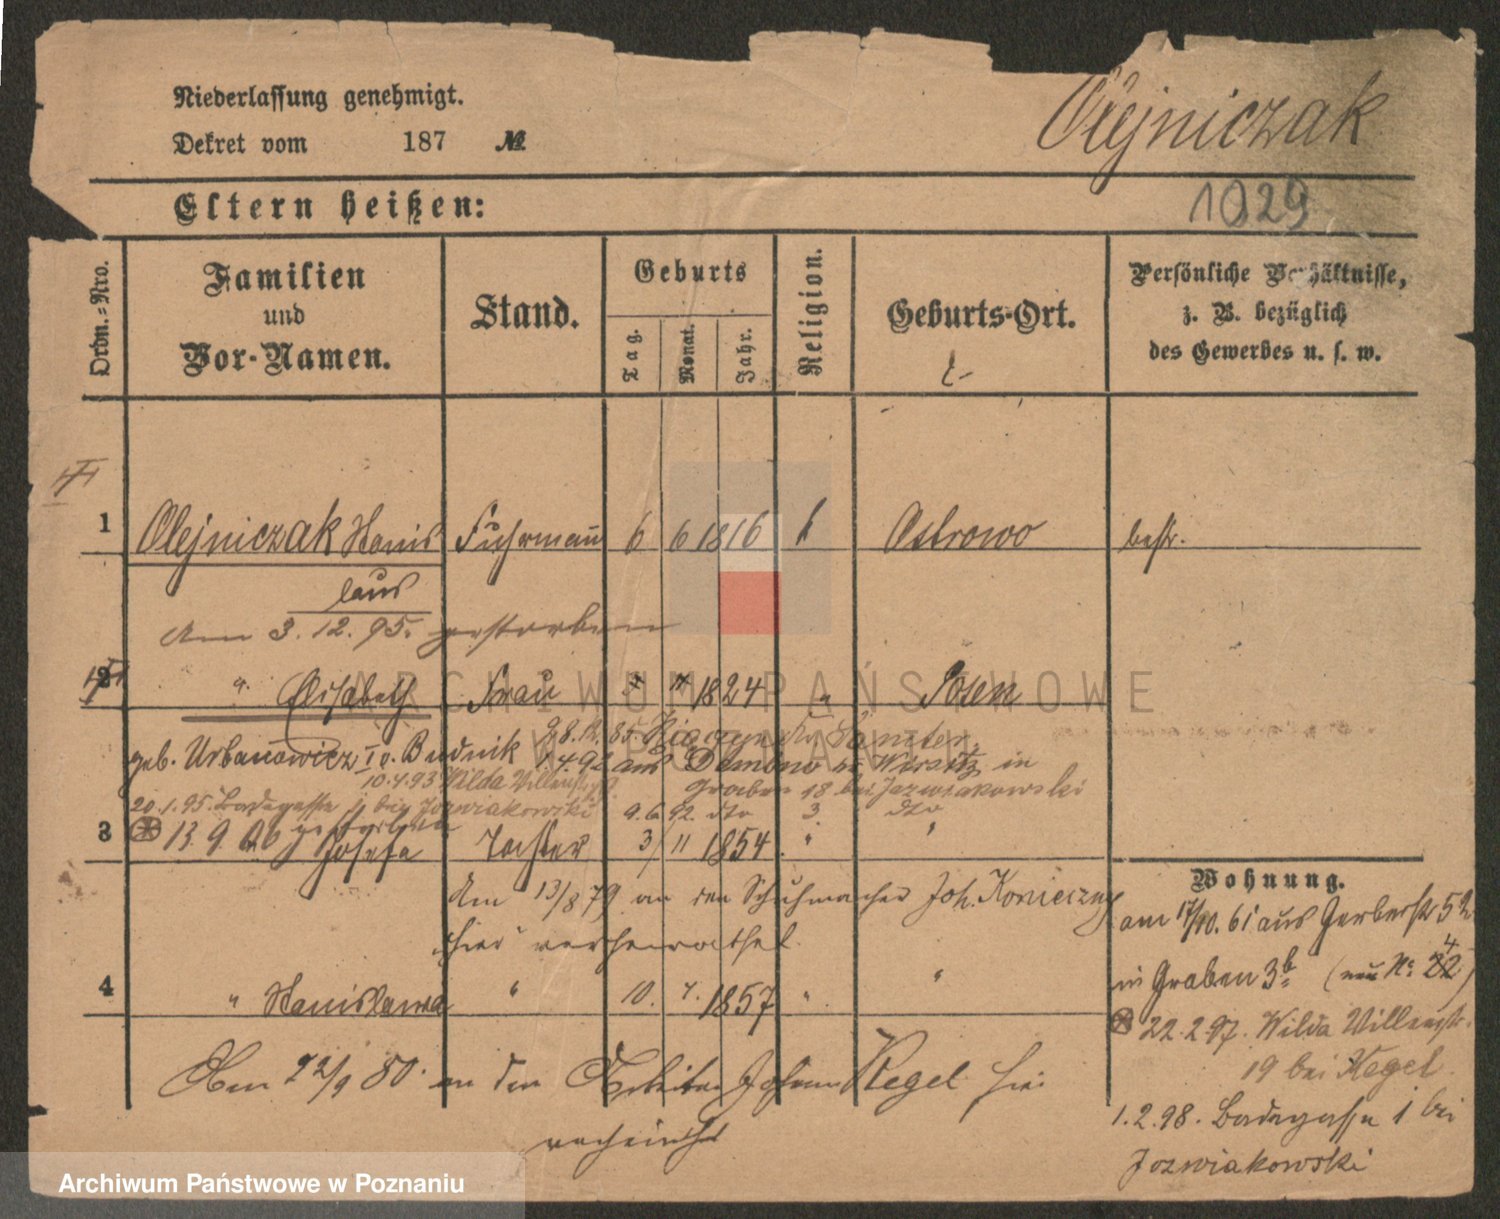 Niederlassung genehmigt.
Dekret vom 187 №
Olejniczak
1029
Eltern heißen:
Ordn.-Nro.
Familien
und
Vor-Namen.
Stand.
Geburts
Tag.
Monat.
Jahr.
Religion.
Geburts-Ort.
Persönliche Verhältnisse,
z. B. bezüglich
des Gewerbes u. s. w.
1 Olejniczak Stanis Fuhrmann 6 6 1816 k Ostrowo bestr.
laus
Am 3.12.95. gestorben
2 " Elisabeth Frau 1824 " Posen
geb. Urbanowicz I v. Budnik
1.4.92 aus Dembno Wirsitz in
10.4.93 Wilda Villenstr.
Graben 18 bei Jozwiakowski
20.1.95. Badegasse 1 bei Jozwiakowski 9.6.92. dto 3. dto
13.9.06 gestorben
3 Josefa Tochter 3/ 11 1854 " "
Am 13/8 79 an den Schuhmacher Joh. Konieczny
hier verheirathet.
4 " Stanislawa " 10. 4. 1857 " "
Am 22/9 80. an den Arbeiter Johann Kegel hier
verheirathet
Wohnung.
am 17/10. 61 aus Gerberstr 52
in Graben 3b (neu No 22 4)
22.2.97. Wilda Villenstr.
19 bei Kegel.
1.2.98. Badegasse 1 bei
Jozwiakowski
ARCHIWUM PAŃSTWOWE
W POZNANIU
Archiwum Państwowe w Poznaniu